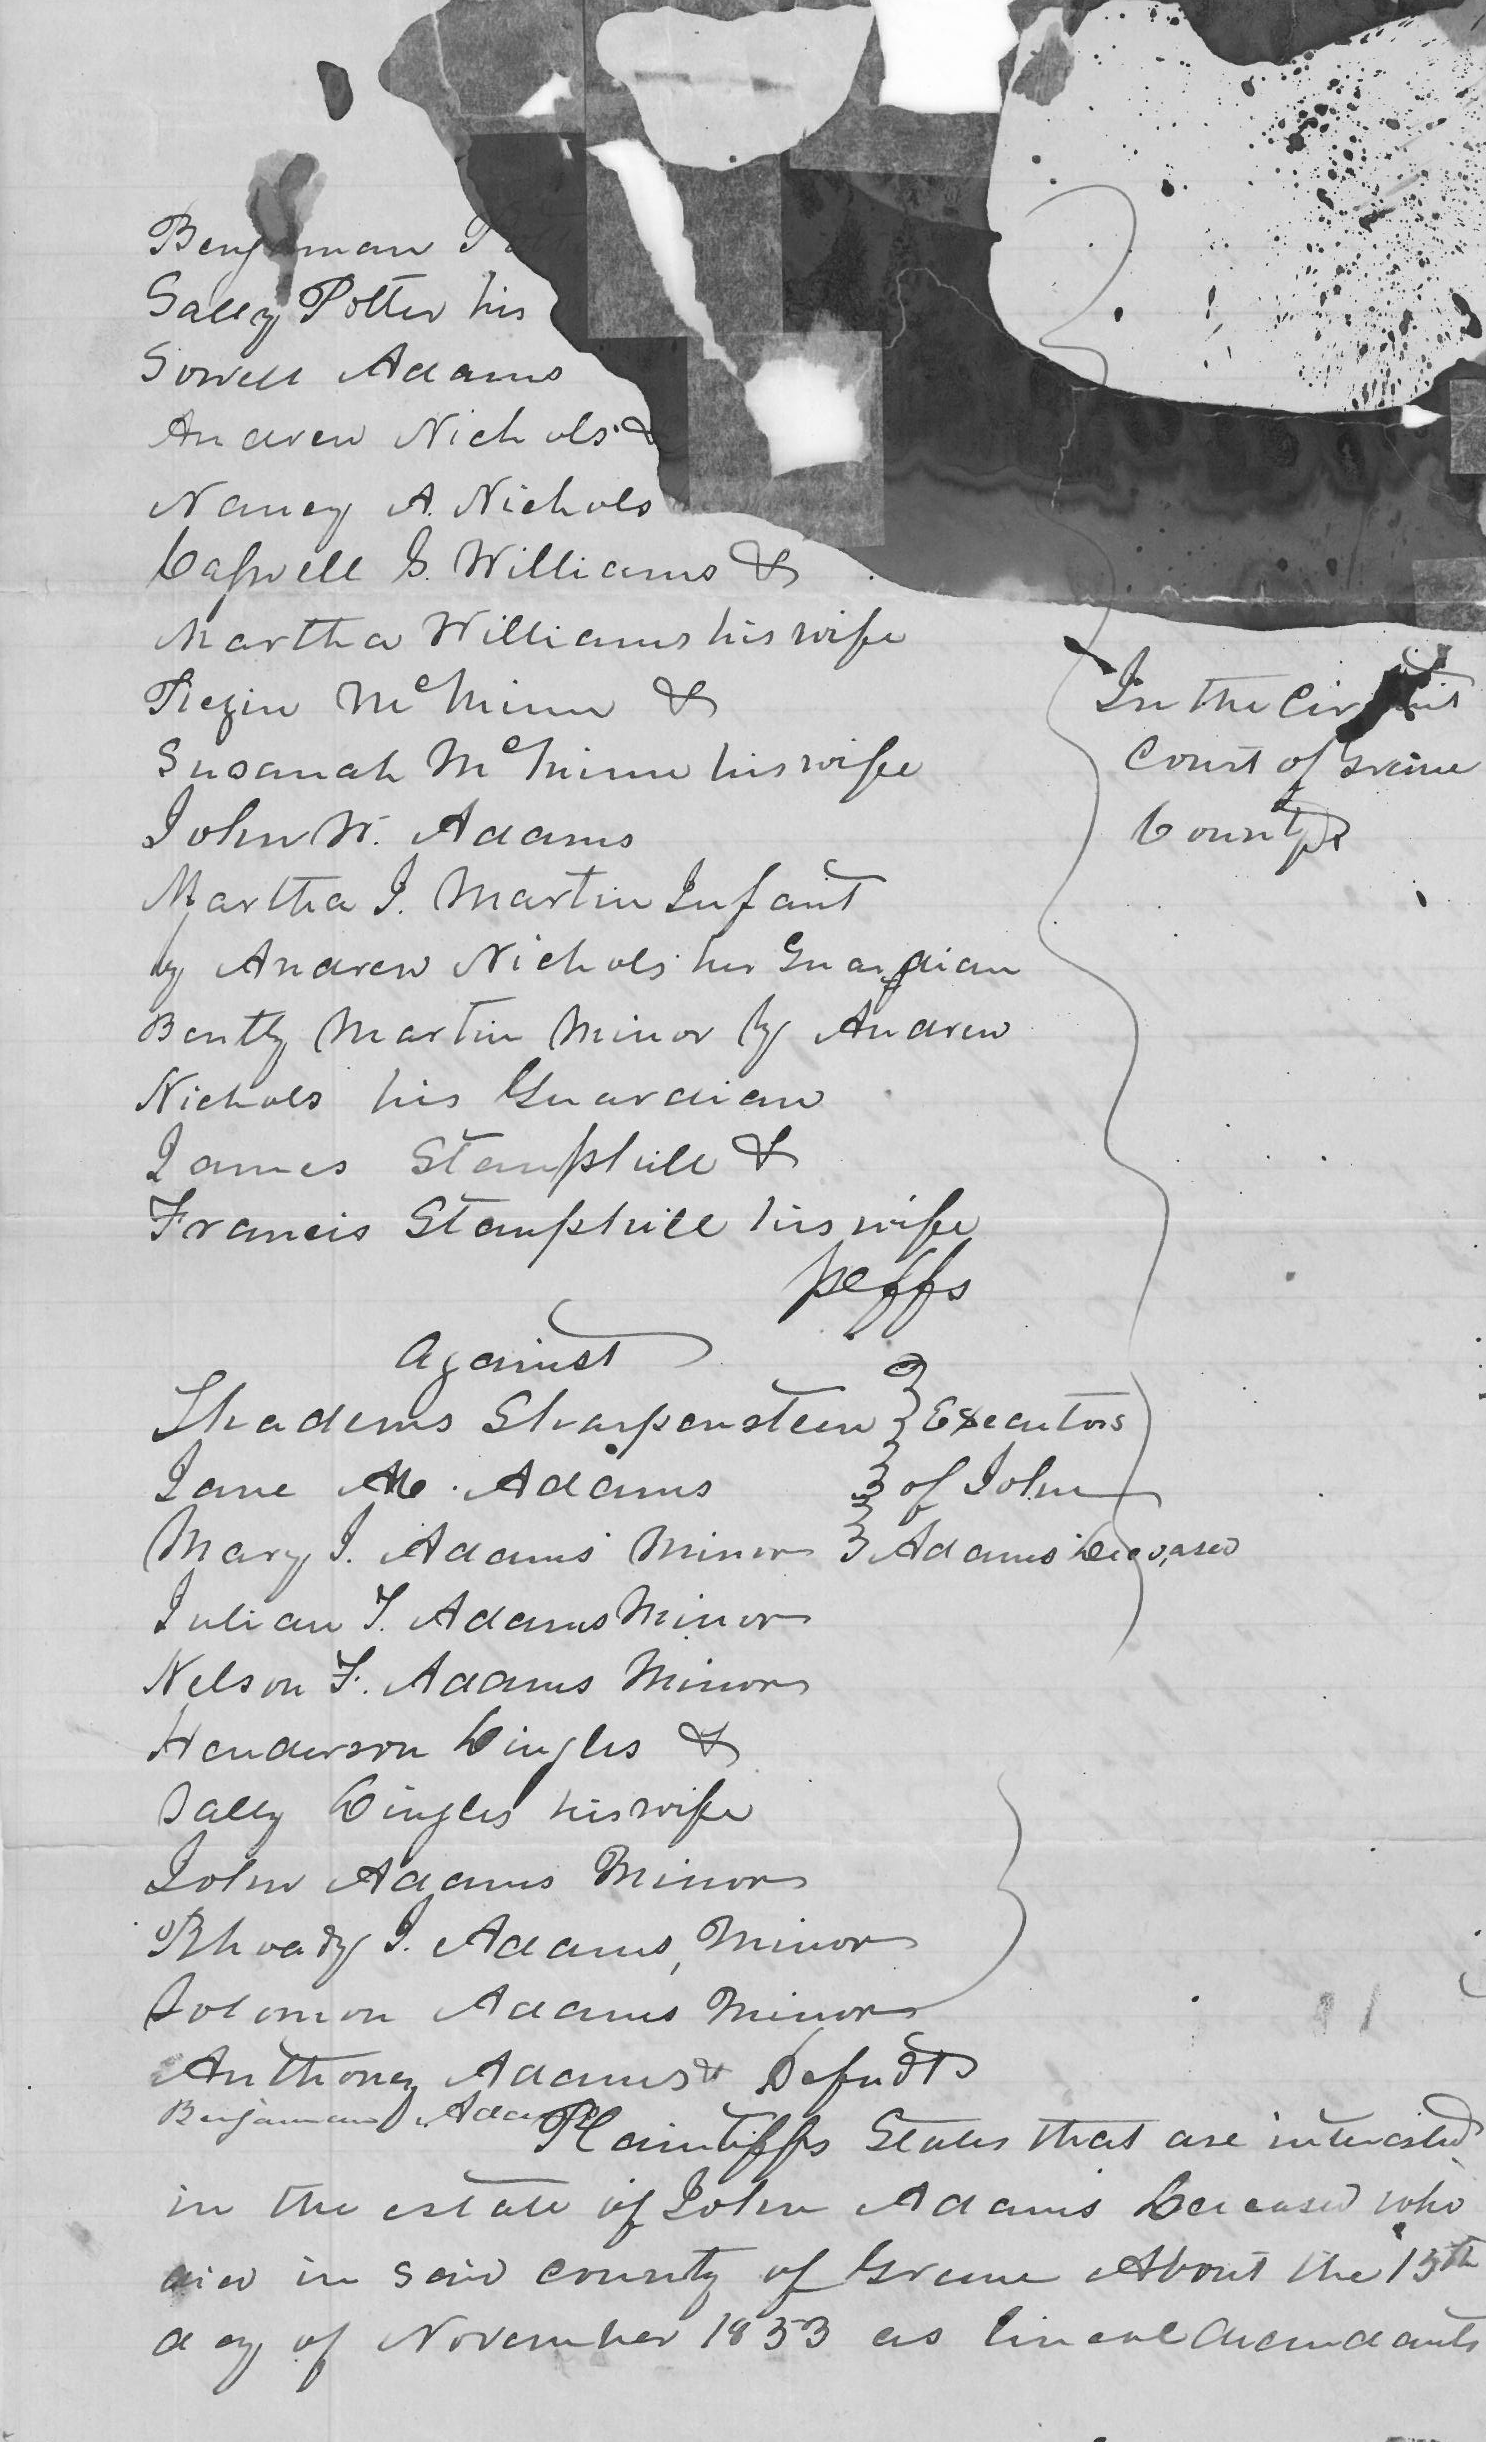 Benjaman
Sally Potter his
Sowell Adams
Andrew Nichols &
Nancy A. Nichols
Caswell G. Williams &
Martha Williams his wife
Rezin McMinn &
Susanah McMinn his wife
John W. Adams
Martha J. Martin Infant
by Andrew Nichols her Guardian
Bently Martin Minor by Andrew
Nichols his Guardian
James Stamphill &
Francis Stamphill his wife
plffs
In the Circuit
Court of Greene
County
Against
Thadeus Sharpensteen Executors
Jane M. Adams of John
Mary J. Adams Minor Adams Deceased
Julian T. Adams Minor
Nelson F. Adams Minor
Henderson Cingles &
Sally Cingles his wife
John Adams Minor
Rhoady J. Adams, Minor
Solomon Adams Minor
Anthoney Adams & Defndts
Benjaman Adams
Plaintiffs States that are interested
in the estate of John Adams Deceased who
died in said county of Greene About the 15th
day of November 1853 as lineal